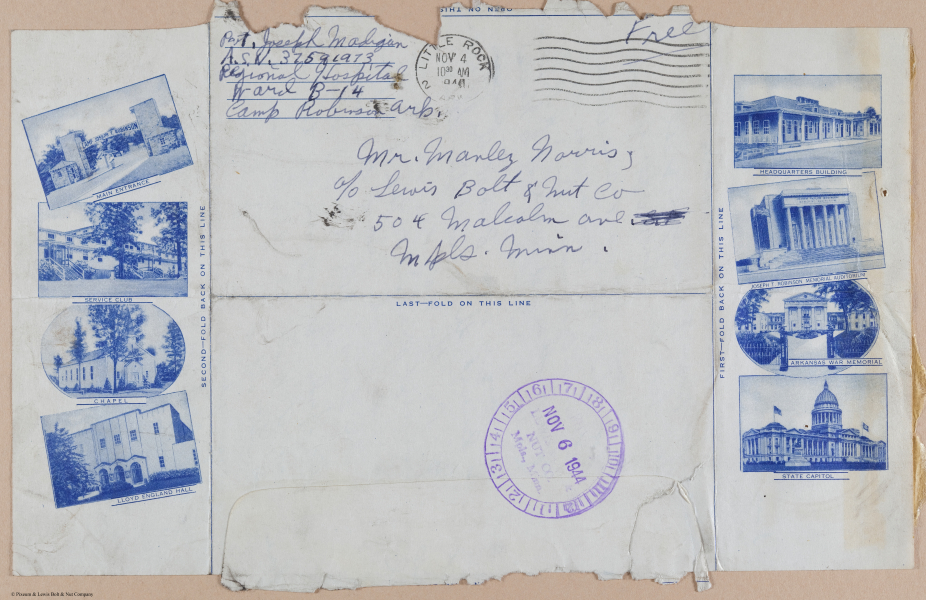 OPEN ON THIS
Pvt. Joseph Madigan
A.S.N. 37591973
Regional Hospital
Ward B-14
Camp Robinson Ark.
LITTLE ROCK
NOV 4
10 30 AM
1944
2
Free
Mr. Manley Norris,
c/o Lewis Bolt & Nut Co
504 Malcolm ave
Mpls. Minn.
LAST—FOLD ON THIS LINE
SECOND—FOLD BACK ON THIS LINE
FIRST—FOLD BACK ON THIS LINE
ROBINSON
MAIN ENTRANCE
SERVICE CLUB
CHAPEL
LLOYD ENGLAND HALL
HEADQUARTERS BUILDING
JOSEPH T. ROBINSON MEMORIAL AUDITORIUM
ARKANSAS WAR MEMORIAL
STATE CAPITOL
12 13 14 15 16 17 18 19
NOV 6 1944
NUT CO.
Minn.
© Pixsum & Lewis Bolt & Nut Company